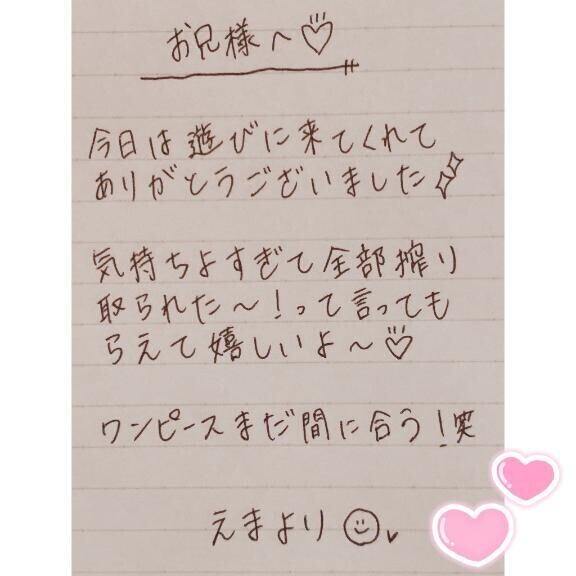 お兄様へ♡
今日は遊びに来てくれて
ありがとうございました
気持ちよすぎて全部搾り
取られた〜！って言っても
らえて嬉しいよ〜♡
ワンピースまだ間に合う！笑
えまより